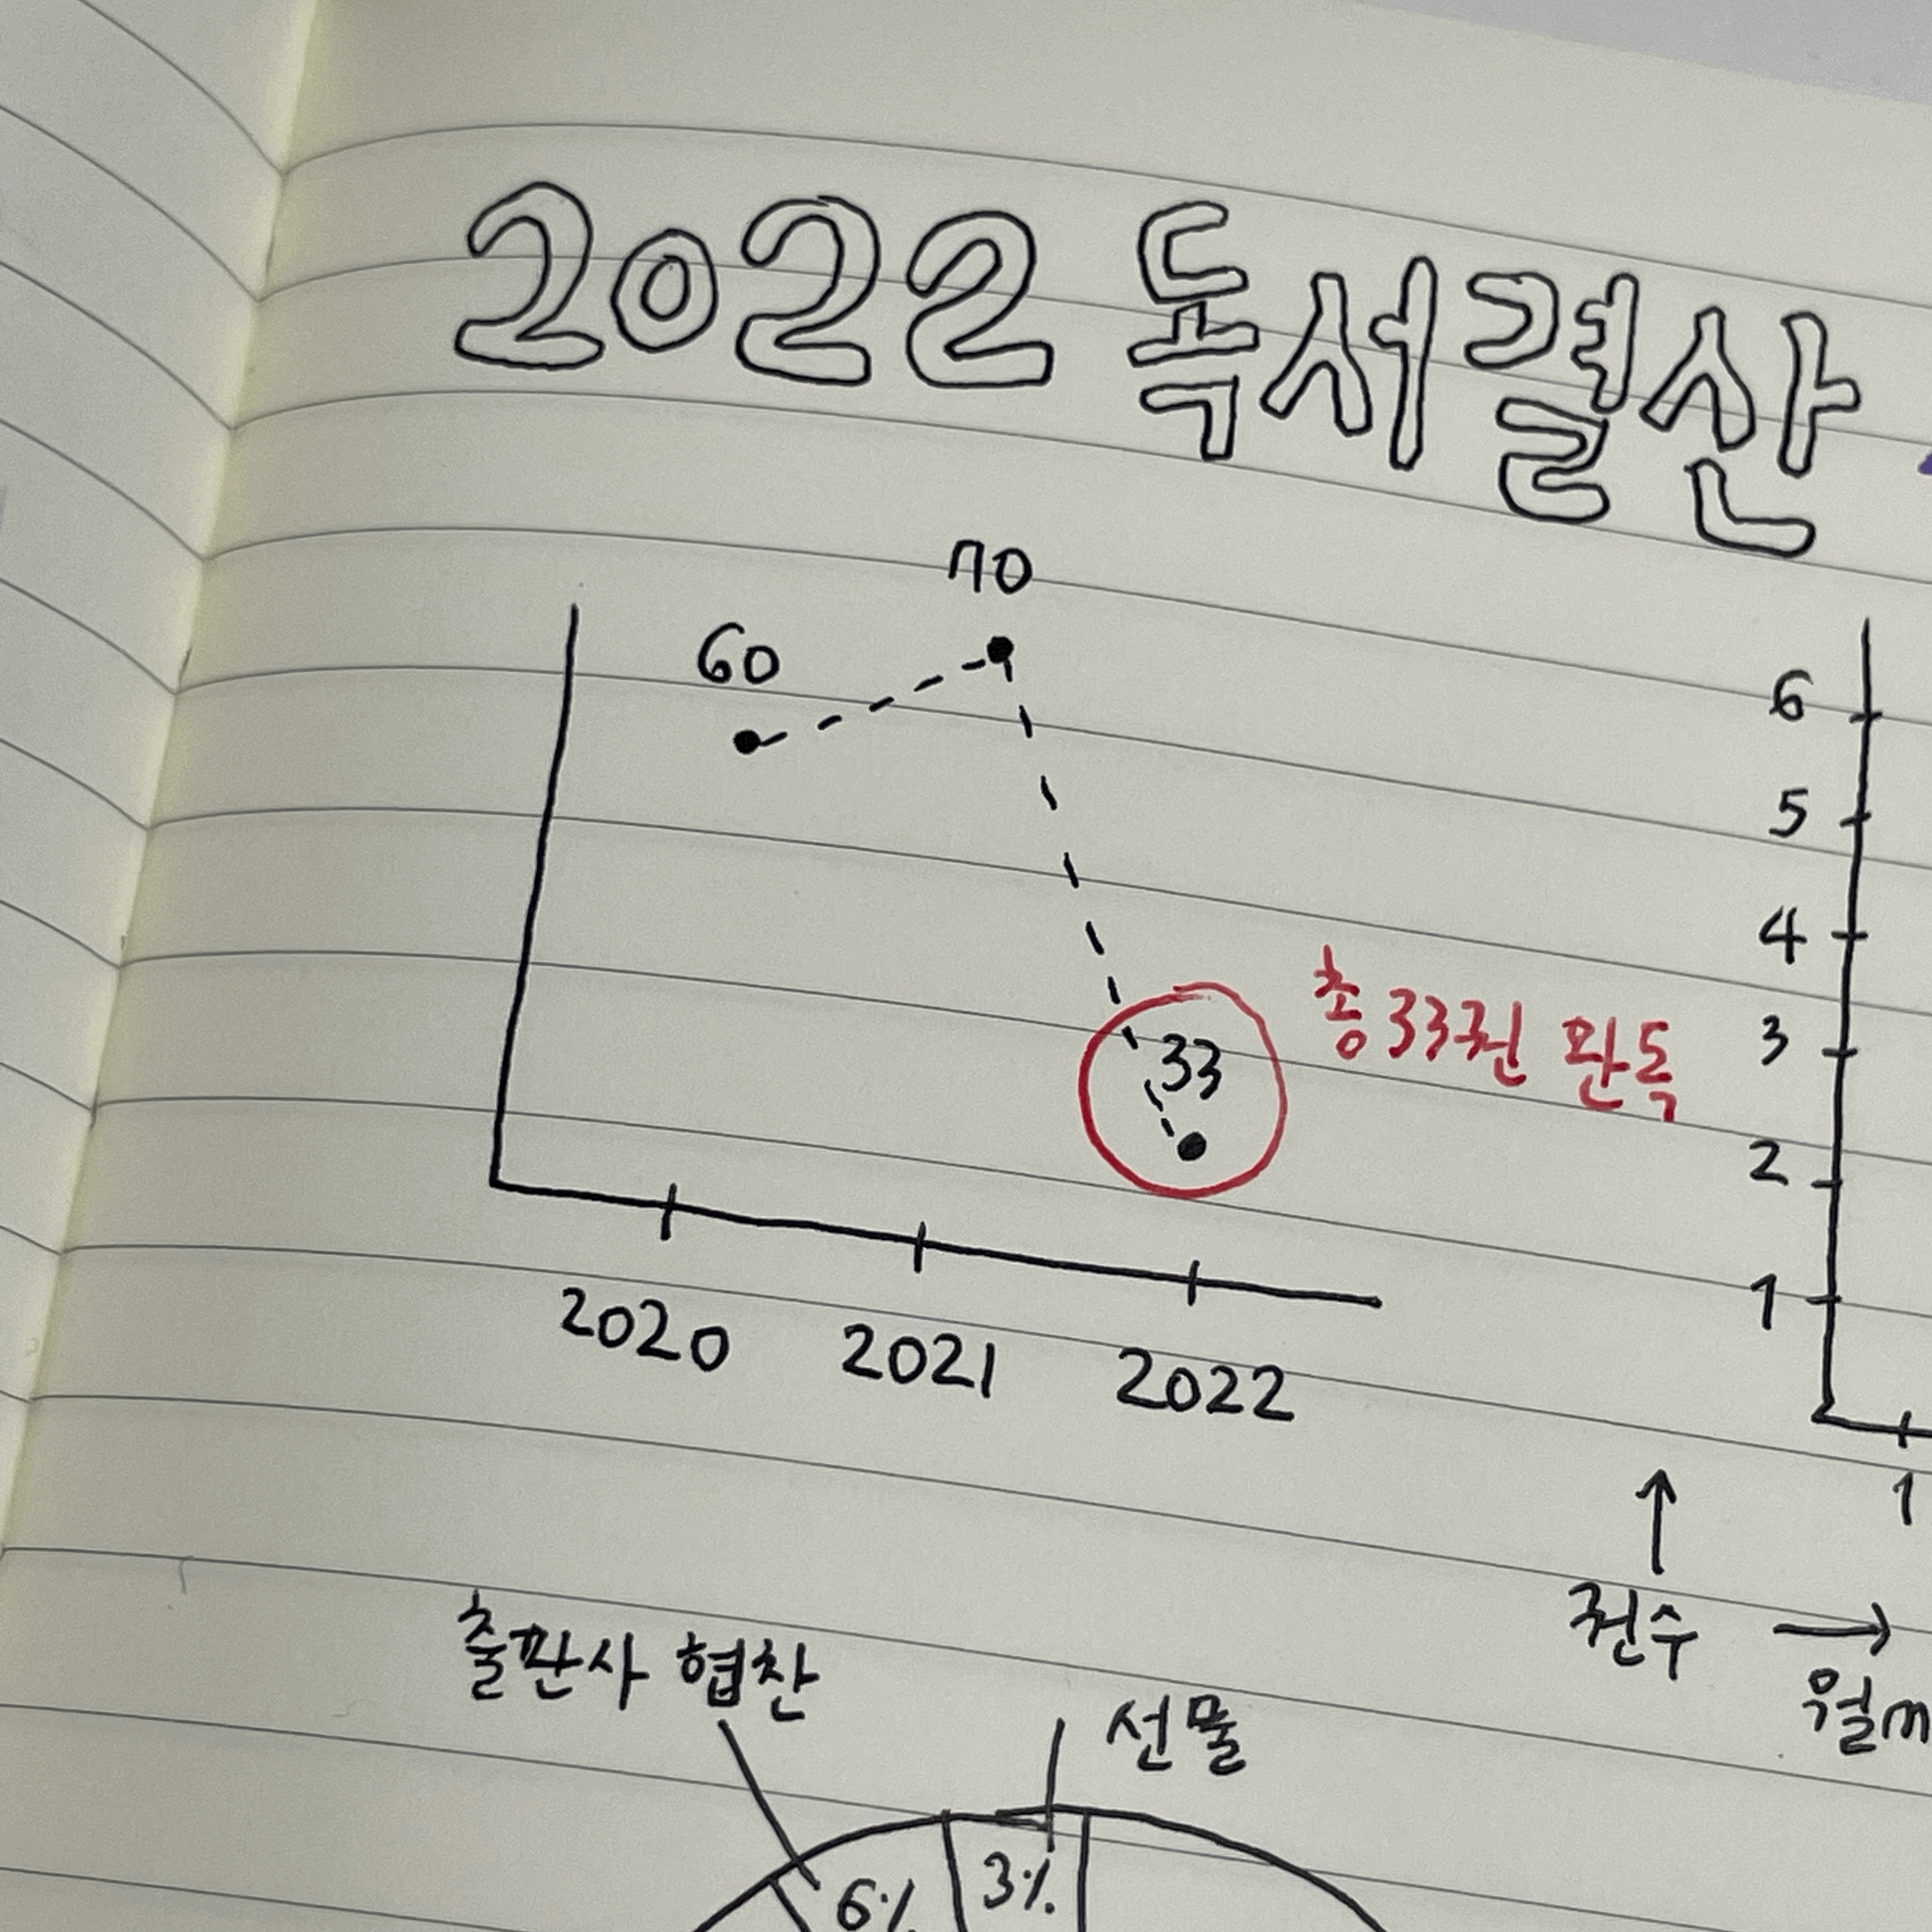 2022 독서결산
70
60
33
총 33권 완독
2020 2021 2022
6
5
4
3
2
1
1
↑
권수 →
월
출판사 협찬
선물
6%
3%